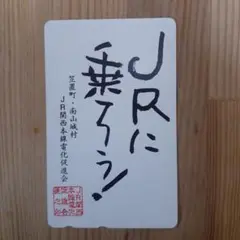 JRに
乗ろう!
笠置町・南山城村
JR関西本線電化促進会